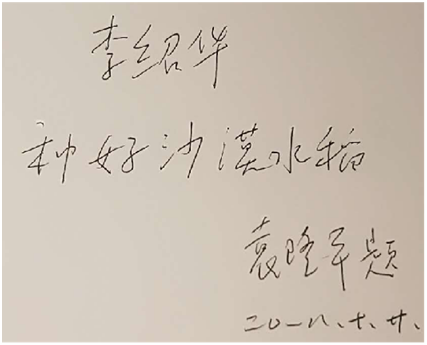 李绍华
种好沙漠水稻
袁隆平题
二〇一八.十.廿.